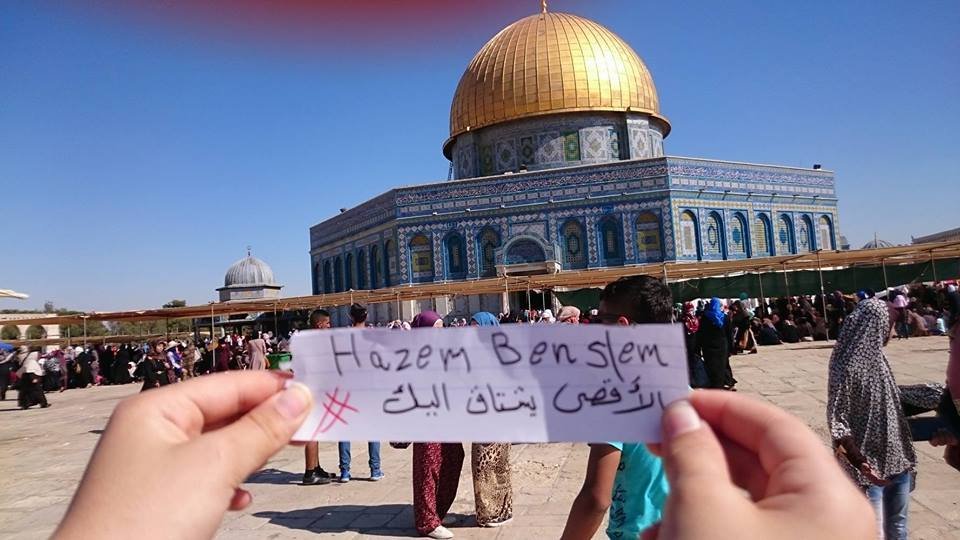 Hazem Benslem
الأقصى يشتاق اليك #